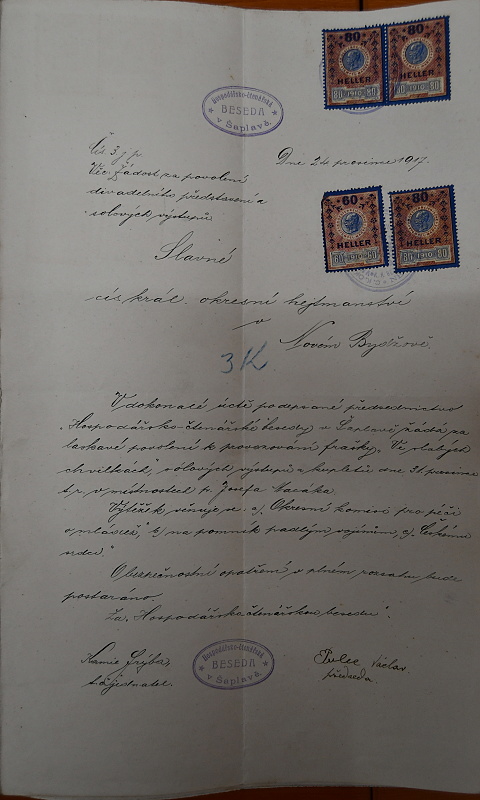 80 80
HELLER HELLER
80 1910 80 80 1910 80
Hospodářsko-čtenářská
BESEDA
v Šaplavě.
Čís 3 z pr
Věc: Žádost za povolení
divadelního představení a
sólových výstupů
Dne 24. prosince 1917.
60 80
HELLER HELLER
60 1910 60 80 1910 80
Slavné
cís. král. okresní hejtmanství
v
Novém Bydžově.
3K.
V dokonalé úctě podepsané předsednictvo
"Hospodářsko-čtenářské besedy v Šaplavě žádá za
laskavé povolení k provozování frašky "Ve slabých
chvilkách", sólových výstupů a kupletů dne 31. prosince
t.r. v místnostech p. Josefa Macáka.
Výtěžek věnuje se: a) Okresní komisi pro péči
o mládež", b) na pomník padlým vojínům, c) "Českému
srdci."
O bezpečnostní opatření v plném rozsahu bude
postaráno.
Za "Hospodářsko čtenářskou besedu".
Hospodářsko-čtenářská
BESEDA
v Šaplavě.
jednatel.
Václav
předseda.